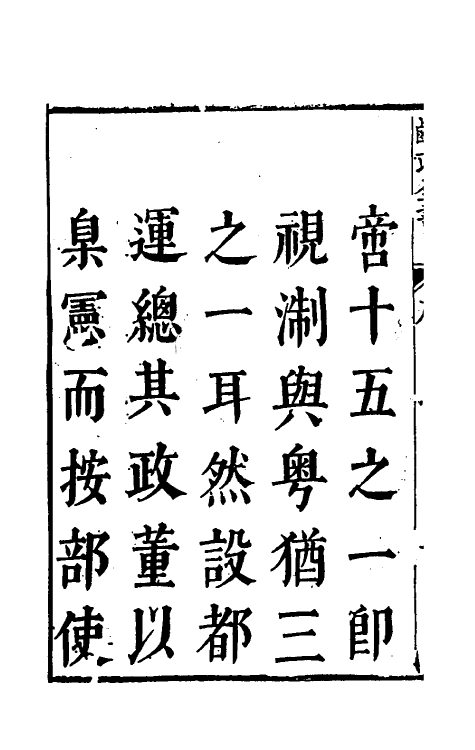 啻十五之一即
視淛與粤猶三
之一耳然設都
運總其政董以
臬憲而按部使